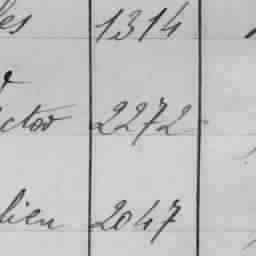 les 1314
ctor 2272
lien 2047